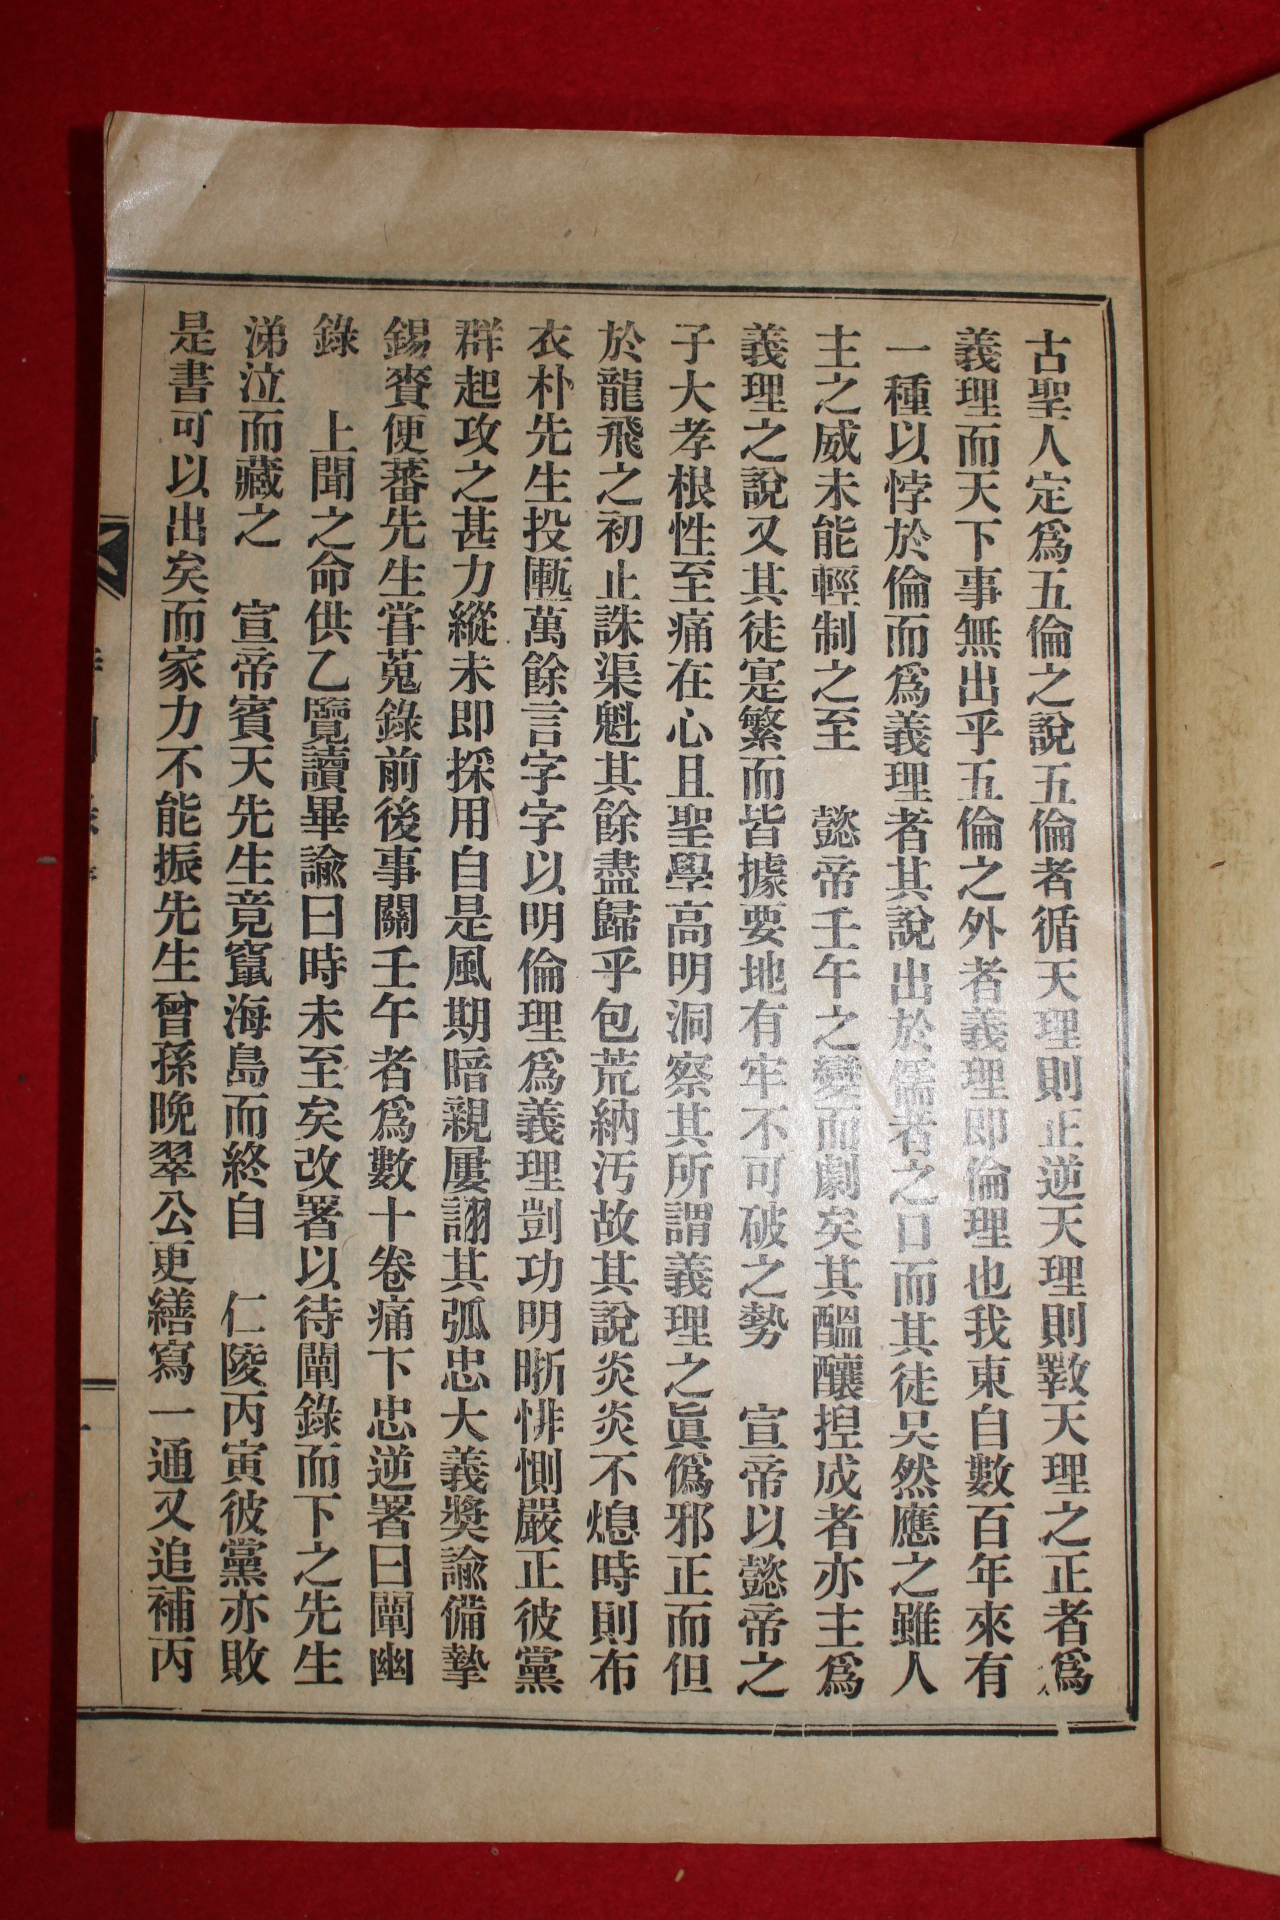 古聖人定爲五倫之說五倫者循天理則正逆天理則斁天理之正者爲
義理而天下事無出乎五倫之外者義理即倫理也我東自數百年來有
一種以悖於倫而爲義理者其說出於儒者之口而其徒吳然應之雖人
主之威未能輕制之至　懿帝壬午之變而劇矣其醞釀揑成者亦主爲
義理之說又其徒寔繁而皆據要地有牢不可破之勢　宣帝以懿帝之
子大孝根性至痛在心且聖學高明洞察其所謂義理之眞僞邪正而但
於龍飛之初止誅渠魁其餘盡歸乎包荒納汚故其說炎炎不熄時則布
衣朴先生投匭萬餘言字字以明倫理爲義理剴功明晣悱惻嚴正彼黨
群起攻之甚力縱未即採用自是風期暗親屢詡其弧忠大義奬諭備摯
錫賚便蕃先生甞蒐錄前後事關壬午者爲數十卷痛卞忠逆署曰闡幽
錄　上聞之命供乙覽讀畢諭曰時未至矣改署以待闡錄而下之先生
涕泣而藏之　宣帝賓天先生竟竄海島而終自　仁陵丙寅彼黨亦敗
是書可以出矣而家力不能振先生曾孫晩翠公更繕寫一通又追補丙